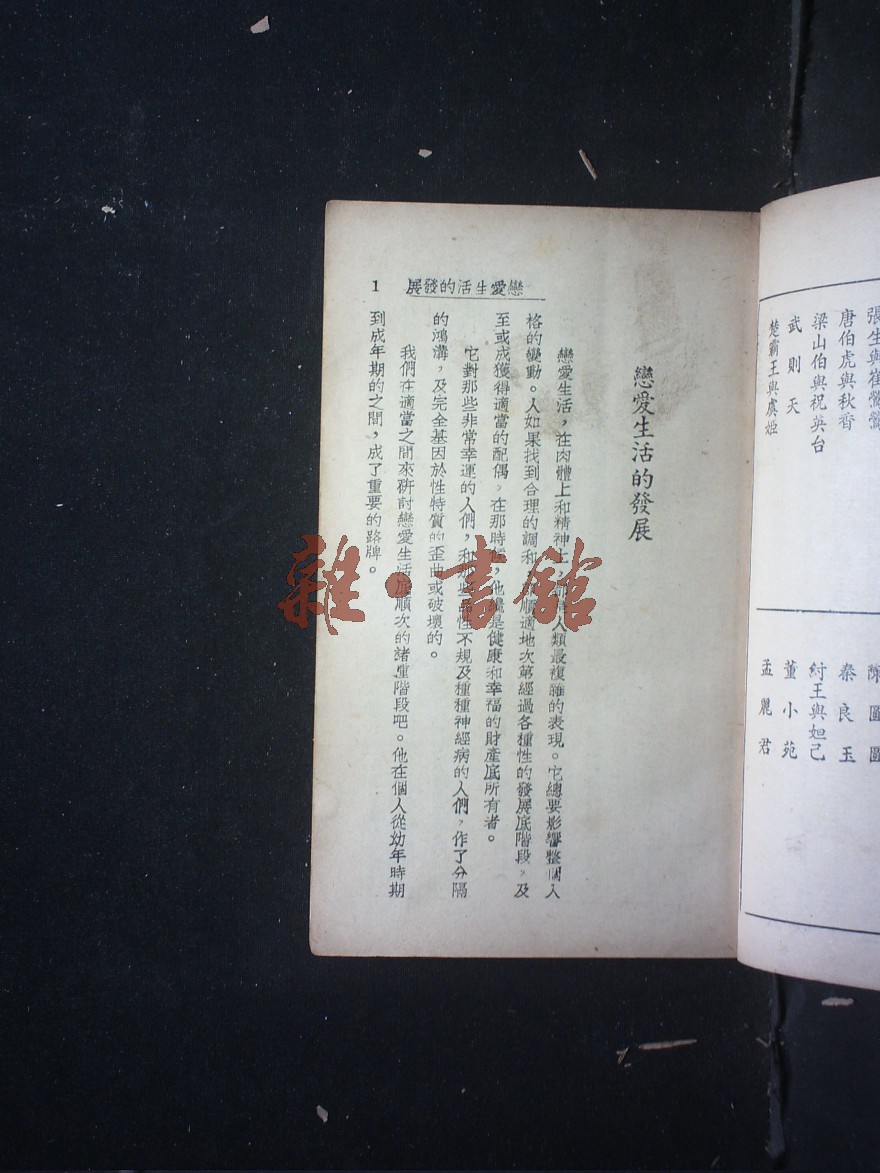 張生與崔鶯鶯
唐伯虎與秋香
梁山伯與祝英台
武則天
楚霸王與虞姬
陳圓圓
秦良玉
紂王與妲己
董小苑
孟麗君
戀愛生活的發展
1
戀愛生活的發展
戀愛生活，在肉體上和精神上，都是人類最複雜的表現。它總要影響整個人
格的變動。人如果找到合理的調和，順適地次第經過各種性的發展底階段，及
至或成獲得適當的配偶，在那時候，他纔是健康和幸福的財產底所有者。
它對那些非常幸運的人們，和那些品性不規及種種神經病的人們，作了分隔
的鴻溝，及完全基因於性特質的歪曲或破壞的。
我們在適當之間來研討戀愛生活底順次的諸重階段吧。他在個人從幼年時期
到成年期的之間，成了重要的路牌。
雜·書館